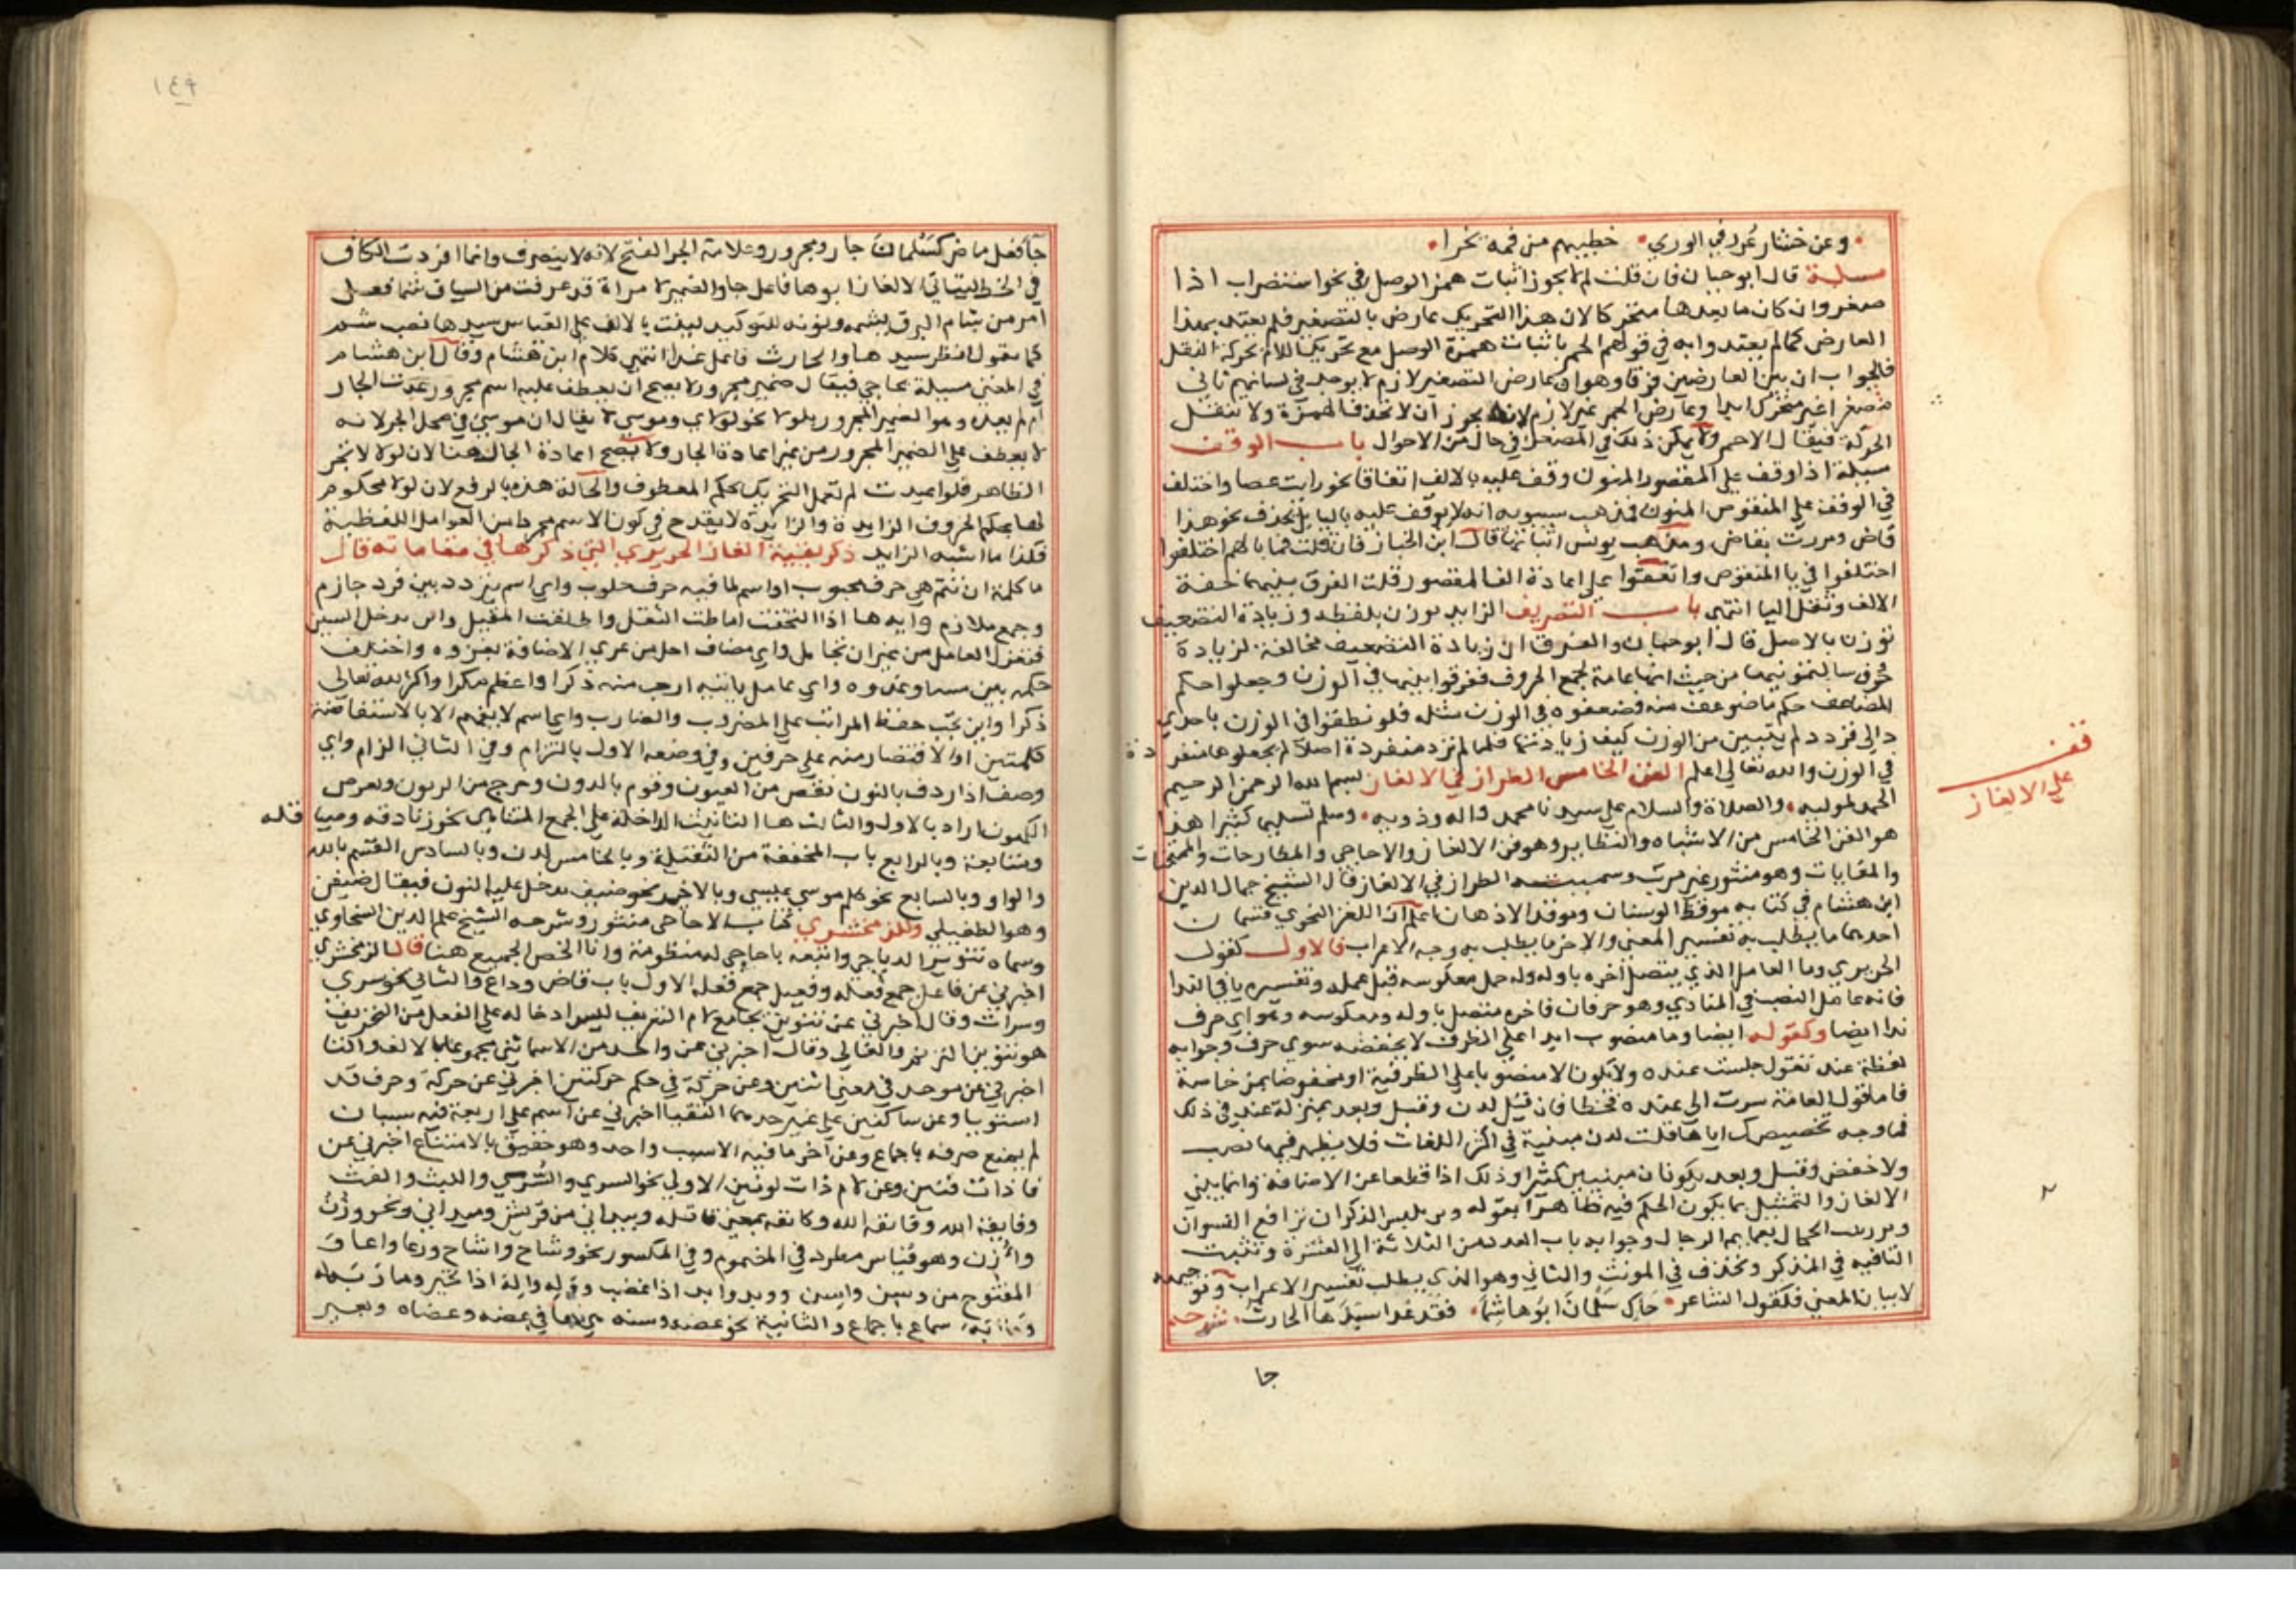 وعن خشار غرد في الوري خطيبهم من فمه يخرا
مسيلة قال ابو حيان فان قلت لم لا يجوز اثبات همز الوصل في نحو استضراب اذا
صغر وان كان ما بعدها متحركا لان هذا التحريك عارض بالتصغير فلم يعتد بهذا
العارض كما لم يعتدوا به في قولهم الحمر باثبات همزة الوصل مع تحريك اللام بحركة النقل
فالجواب ان بين العارضين فرقا وهو ان عارض التصغير لازم لا يوجد في لسانهم ثاني
مصغرا غير متحرك ابدا وعارض الحمر غير لازم لانه يجوز ان لا تحذف الهمزة ولا تنقل
الحركة فيقال الاحمر ولا يمكن ذلك في المصغر في حال من الاحوال باب الوقف
مسيلة اذا وقف علي المقصور المنون وقف عليه بالالف اتفاقا نحو رايت عصا واختلف
في الوقف علي المنقوص المنون فمذهب سيبويه انه لا يوقف عليه باليا بل تحذف نحو هذا
قاض ومررت بقاض ومذهب يونس اثباتها قال ابن الخباز فان قلت فما بالهم اختلفوا
اختلفوا في يا المنقوص واتفقوا علي اعادة الف المقصور قلت الفرق بينهما خفة
الالف وثقل اليا انتهي باب التصريف الزايد يوزن بلفظه وزيادة التضعيف
توزن بالاصل قال ابو حيان والفرق ان زيادة التضعيف مخالفة لزيادة
حروف سالتمونيها من حيث انها عامة لجمع الحروف ففرقوا بينهما في الوزن وجعلوا حكم
المضاعف حكم ما ضوعف منه فضعفوه في الوزن مثله فلو نطقوا في الوزن باحدي
دالي قردد لم يتبين من الوزن كيف زيادتها فلما لم تزد منفردة اصلا لم يجعلوها منفردة
في الوزن والله تعالي اعلم الفن الخامس الطراز في الالغاز بسم الله الرحمن الرحيم
الحمد لموليه والصلاة والسلام علي سيدنا محمد واله وذويه وسلم تسليما كثيرا هذا
هو الفن الخامس من الاشباه والنظاير وهو فن الالغاز والاحاجي والمطارحات والممتحنات
والمغايات وهو منثور غير مرتب وسميته الطراز في الالغاز قال الشيخ جمال الدين
ابن هشام في كتابه موقظ الوسنان وموقد الاذهان اعلم ان اللغز النحوي قسمان
احدهما ما يطلب به تفسير المعني والاخر ما يطلب به وجه الاعراب فالاول كقول
الحريري وما العامل الذي يتصل اخره باوله وله حل معكوسه قبل عمله وتفسيره يا في الندا
فانه عامل النصب في المنادي وهو حرفان فاخره متصل باوله ومعكوسه وهو اي حرف
ندا ايضا وكقوله ايضا وما منصوب ابدا علي الظرف لا يخفضه سوي حرف وجوابه
لفظة عند تقول جلست عنده ولا يكون الا منصوبا علي الظرفية او مخفوضا بمن خاصة
فاما قول العامة سرت الي عنده فخطا فان قيل لدن وقبل وبعد بمنزلة عند في ذلك
فما وجه تخصيصك اياها قلت لدن مبنية في اكثر اللغات فلا يظهر فيها نصب
ولا خفض وقبل وبعد يكونان مبنيين كثيرا وذلك اذا قطعا عن الاضافة وانما يبني
الالغاز والتمثيل بما يكون الحكم فيه ظاهرا بقوله واين يلبس الذكران براقع النسوان
وبرزت الحجال بعمايم الرجال وجوابه باب العدد من الثلاثة الي العشرة وتثبت
التا فيه في المذكر وتحذف في المونث والثاني وهو الذي يطلب تفسير الاعراب وتوجيهه
لا بيان المعني فكقول الشاعر جاك سلمان ابو هاشما فقد غدا سيدها الحارث شرحه
جا
قف
علي الالغاز
١٤٩
جا فعل ماض كسلمان جار ومجرور وعلامة الجر الفتح لانه لا ينصرف وانما افردت الكاف
في الخط ليتاتي الالغاز ابوها فاعل جا والضمير لامراة قد عرفت من السياق شما فعل
امر من شام البرق يشمه ونونه للتوكيد كتبت بالالف علي القياس سيدها نصب بشم
كما تقول انظر سيدها والحارث فاعل غدا انتهي كلام ابن هشام وقال ابن هشام
في المغني مسيلة يحاجي فيقال ضمير مجرور لا يصح ان يعطف عليه اسم مجرور اعدت الجار
ام لم تعده وهو الضمير المجرور بلولا نحو لولاي وموسي لا يقال ان موسي في محل الجر لانه
لا يعطف علي الضمير المجرور من غير اعادة الجار ولا يصح اعادة الجار هنا لان لولا لا تجر
الظاهر فلو اعيدت لم تعمل الجر بل يحكم المعطوف والحالة هذه بالرفع لان لولا محكوم
لها بحكم الحروف الزايدة والزايدة لا يقدح في كون الاسم مجردا من العوامل اللفظية
فكذا ما اشبه الزايد ذكر بقية الغاز الحريري التي ذكرها في مقاماته قال
ما كلمة ان شئتم هي حرف محبوب او اسم لما فيه حرف حلوب واي اسم يتردد بين فرد حازم
وجمع ملازم واية ها اذا التحقت اماطت الثقل واطلقت المعتقل واين تدخل السين
فتعزل العامل من غير ان تجامل واي مضاف اخل من عري الاضافة بعروه واختلف
حكمه بين مسا وغدوه واي عامل نايبه ارحب منه ذكرا واعظم مكرا واكثر لله تعالي
ذكرا واين يجب حفظ المراتب علي المضروب والضارب واي اسم لا يفهم الا بالاستضافة
كلمتين او الاقتصار منه علي حرفين وفي وضعه الاول بالتزام وفي الثاني الزام واي
وصف اذا اردف بالنون نقص من العيون وقوم بالدون وخرج من الزبون وتعرض
الكمون اراد بالاول والثالث ها التانيث الداخلة علي الجمع المتناهي نحو زنادقه وصياقله
وتبابعة وبالرابع باب المخففة من الثقيلة وبالخامس لدن وبالسادس القسم بالله
والواو وبالسابع نحو كلم موسي عيسي وبالاخير نحو ضيف تدخل عليه النون فيقال ضيفن
وهو الطفيلي وللزمخشري كتاب الاحاجي منثور وشرحه الشيخ علم الدين السخاوي
وسماه تنوير الدياجي واتبعه باحاجي له منظومة وانا الخص الجميع هنا قال الزمخشري
اخبرني عن فاعل جمع فعلة وفعيل جمع فعلة الاول باب قاض وداع والثاني نحو سري
وسراة وقال اخبرني عن تنوين يجامع لام التعريف وليس ادخاله علي الفعل من التحريف
هو تنوين الترنم والغالي وقال اخبرني عن واحد من الاسما ثني مجموعا بالالف والتا
اخبرني عن موحد في معني اثنين وعن حركة في حكم حركتين اخبرني عن حركة وحرف قد
استويا وعن ساكنين علي غير حدهما التقيا اخبرني عن اسم علي اربعة فيه سببان
لم يمنع صرفه باجماع وعن اخر ما فيه الا سبب واحد وهو حقيق بالامتناع اخبرني عن
فا ذات فنين وعن لام ذات لونين الاولي نحو